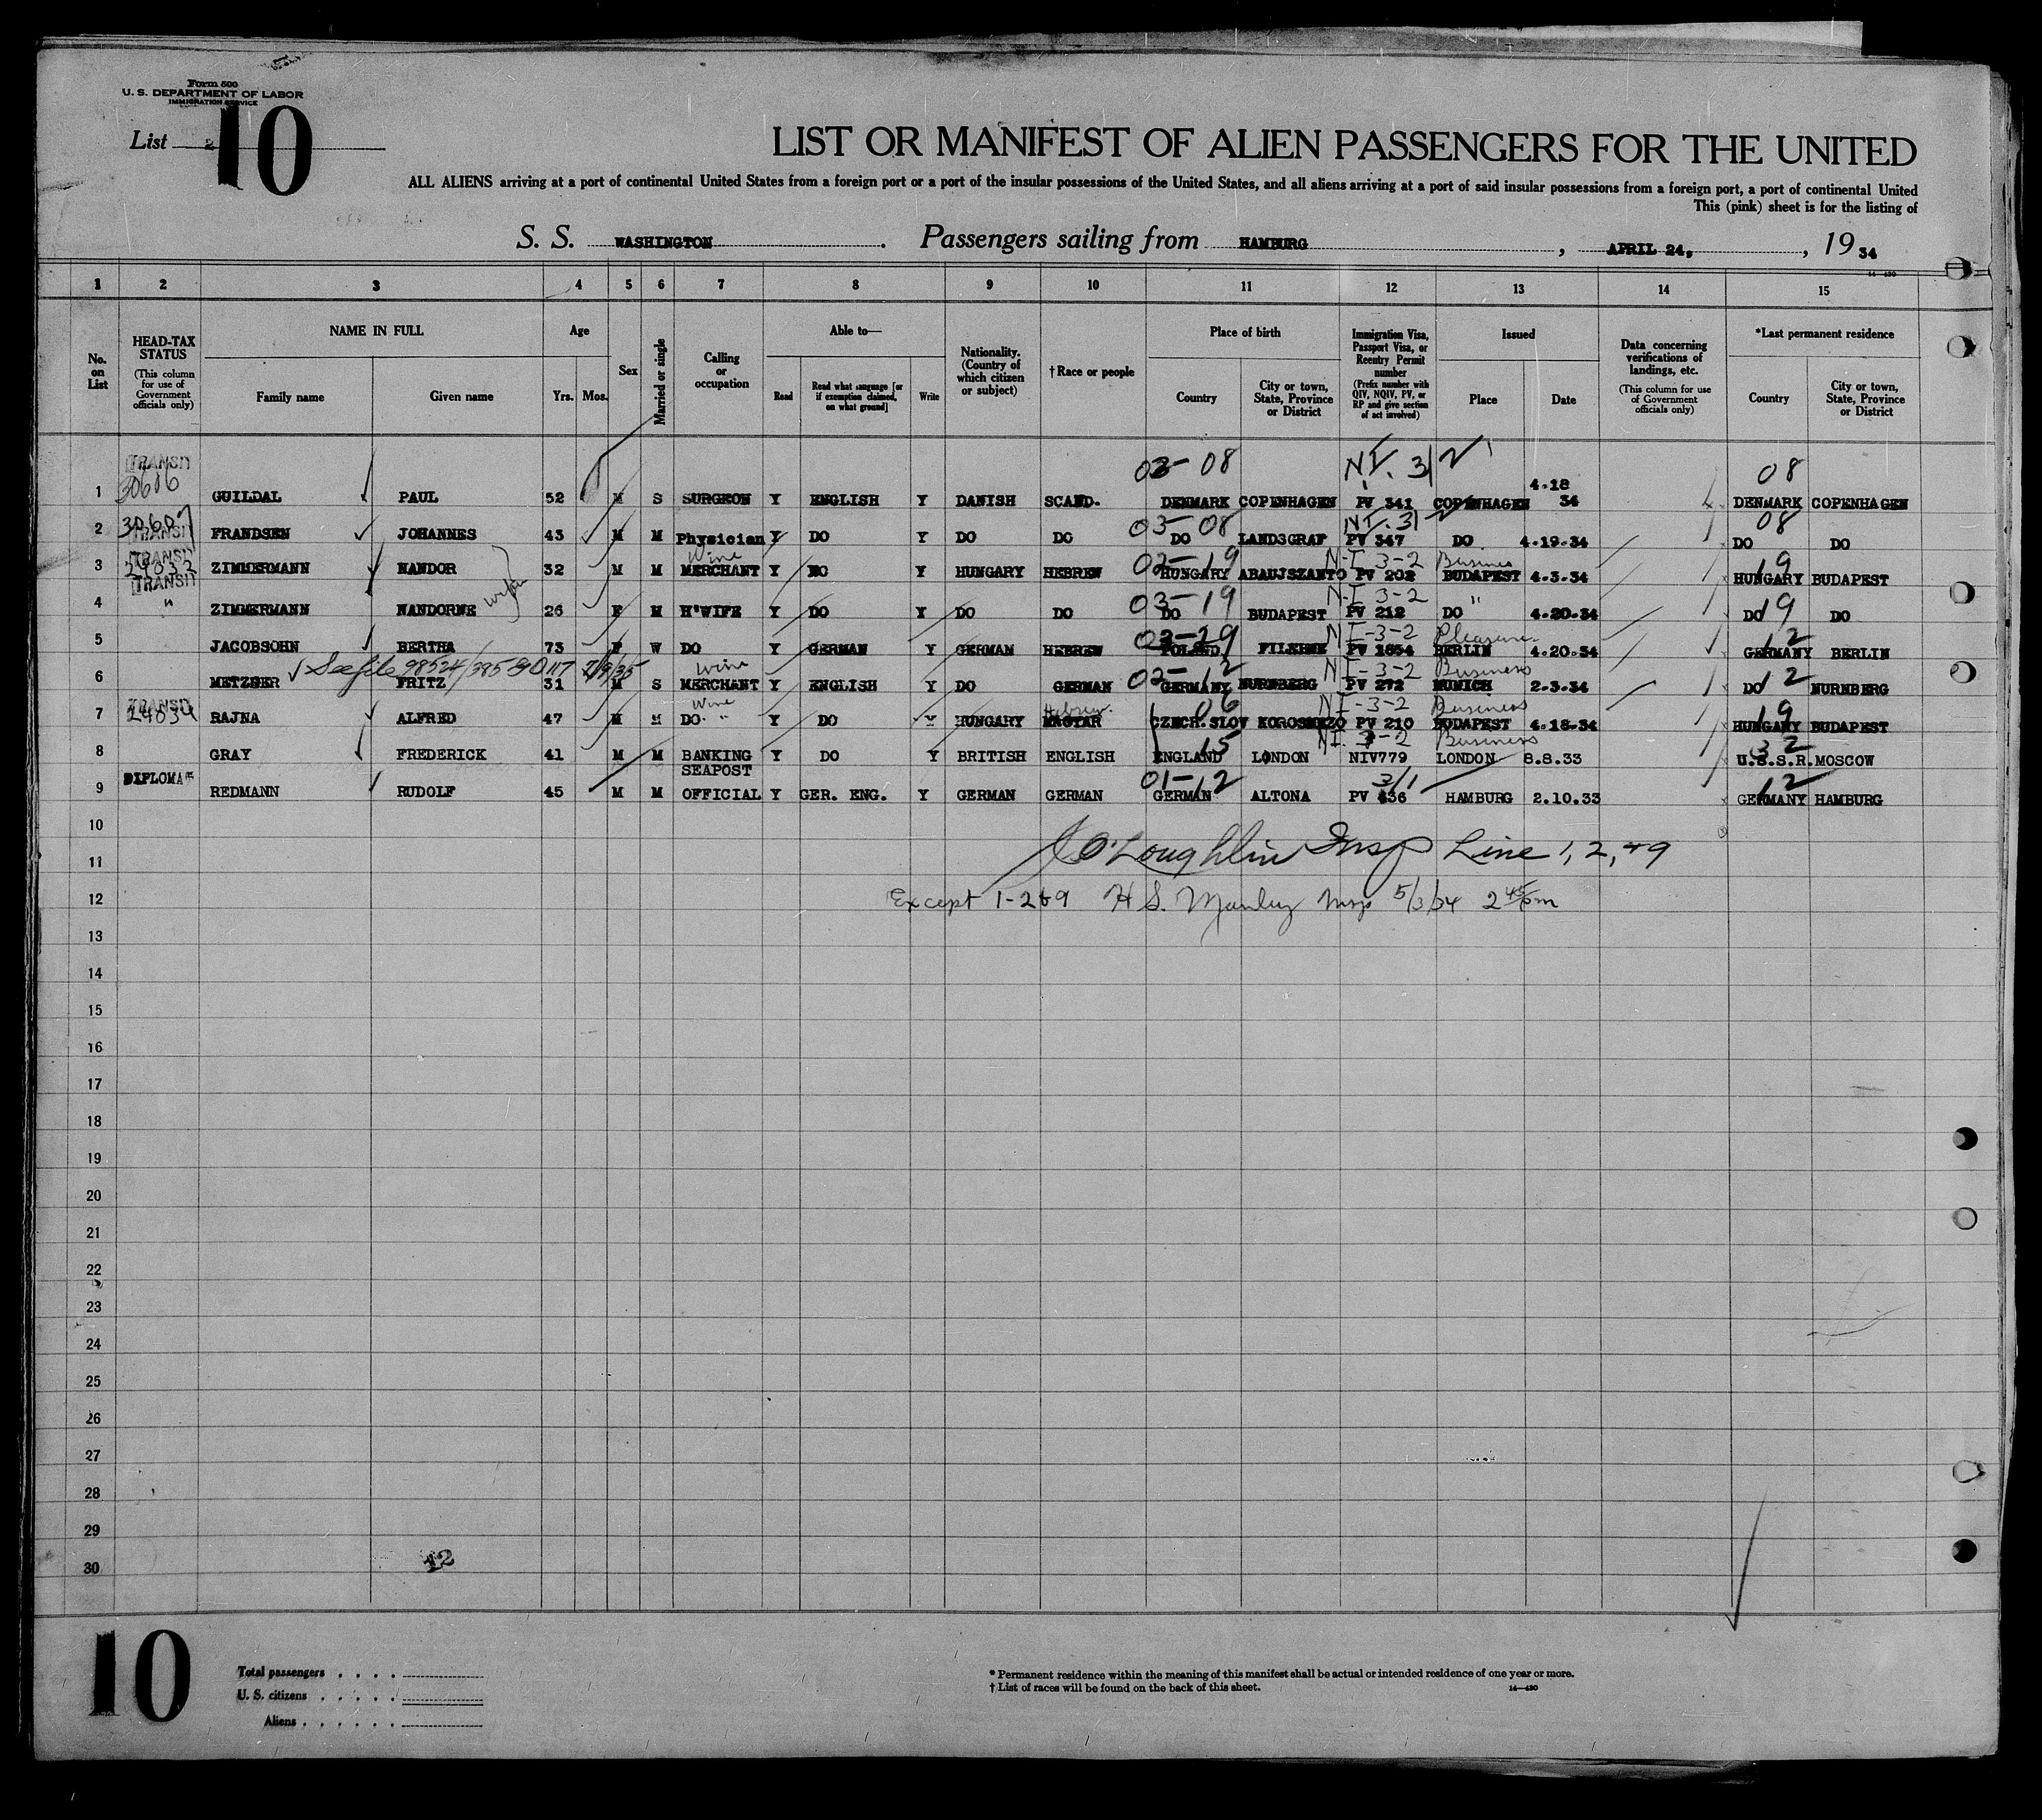 Form 500
U. S. DEPARTMENT OF LABOR
IMMIGRATION SERVICE
List 2 10
LIST OR MANIFEST OF ALIEN PASSENGERS FOR THE UNITED
ALL ALIENS arriving at a port of continental United States from a foreign port or a port of the insular possessions of the United States, and all aliens arriving at a port of said insular possessions from a foreign port, a port of continental United
This (pink) sheet is for the listing of
S. S. WASHINGTON . Passengers sailing from HAMBURG , APRIL 24, , 19 34
14—430
1 2 3 4 5 6 7 8 9 10 11 12 13 14 15
No. on List
HEAD-TAX STATUS (This column for use of Government officials only)
NAME IN FULL Family name Given name
Age Yrs. Mos.
Sex
Married or single
Calling or occupation
Able to— Read Read what language [or if exemption claimed, on what ground] Write
Nationality. (Country of which citizen or subject)
†Race or people
Place of birth Country City or town, State, Province or District
Immigration Visa, Passport Visa, or Reentry Permit number (Prefix number with QIV, NQIV, PV, or RP and give section of act involved)
Issued Place Date
Data concerning verifications of landings, etc. (This column for use of Government officials only)
*Last permanent residence Country City or town, State, Province or District
TRANSIT 03-08 N.I. 3/2 08
30616 4.18
1 GUILDAL PAUL 52 M S SURGEON Y ENGLISH Y DANISH SCAND. DENMARK COPENHAGEN PV 341 COPENHAGEN 34 DENMARK COPENHAGEN
30607 TRANSIT 03-08 N.I. 3/2 08
2 FRANDSEN JOHANNES 43 M M Physician Y DO Y DO DO DO LANDSGRAF PV 347 DO 4.19.34 DO DO
TRANSIT 24032 Wine 02-19 N-I 3-2 Business 19
3 ZIMMERMANN NANDOR 32 M M MERCHANT Y DO Y HUNGARY HEBREW HUNGARY ABAUJSZANTO PV 202 BUDAPEST 4.3.34 HUNGARY BUDAPEST
TRANSIT " wife 03-19 N-I 3-2 " 19
4 ZIMMERMANN NANDORNE 26 F M H'WIFE Y DO Y DO DO DO BUDAPEST PV 212 DO 4.20.34 DO DO
02-29 N I-3-2 Pleasure 12
5 JACOBSOHN BERTHA 73 F W DO Y GERMAN Y GERMAN HEBREW POLAND FILEHNE PV 1654 BERLIN 4.20.34 GERMANY BERLIN
See file 98524/385 Wine 02-12 N I-3-2 Business 12
6 METZGER FRITZ 31 M S MERCHANT Y ENGLISH Y DO GERMAN GERMANY NURNBERG PV 272 MUNICH 2.3.34 DO NURNBERG
TRANSIT 24034 Wine Hebrew. 06 N I-3-2 Business 19
7 RAJNA ALFRED 47 M M DO. " Y DO Y HUNGARY MAGYAR CZECH.SLOV KOROSMEZO PV 210 BUDAPEST 4.18.34 HUNGARY BUDAPEST
15 N I. 3-2 Business 32
8 GRAY FREDERICK 41 M M BANKING Y DO Y BRITISH ENGLISH ENGLAND LONDON NIV779 LONDON 8.8.33 U.S.S.R. MOSCOW
DIPLOMAT SEAPOST 01-12 3/1 12
9 REDMANN RUDOLF 45 M M OFFICIAL Y GER. ENG. Y GERMAN GERMAN GERMAN ALTONA PV 436 HAMBURG 2.10.33 GERMANY HAMBURG
10
11 O'Loughlin Insp Line 1, 2, +9
12 Except 1-2&9 H S. Manley Insp 5/3/34 2 45 pm
13
14
15
16
17
18
19
20
21
22
23
24
25
26
27
28
29
30
12
10
Total passengers . . . .
U. S. citizens . . . . .
Aliens . . . . . .
* Permanent residence within the meaning of this manifest shall be actual or intended residence of one year or more.
† List of races will be found on the back of this sheet.
14—430